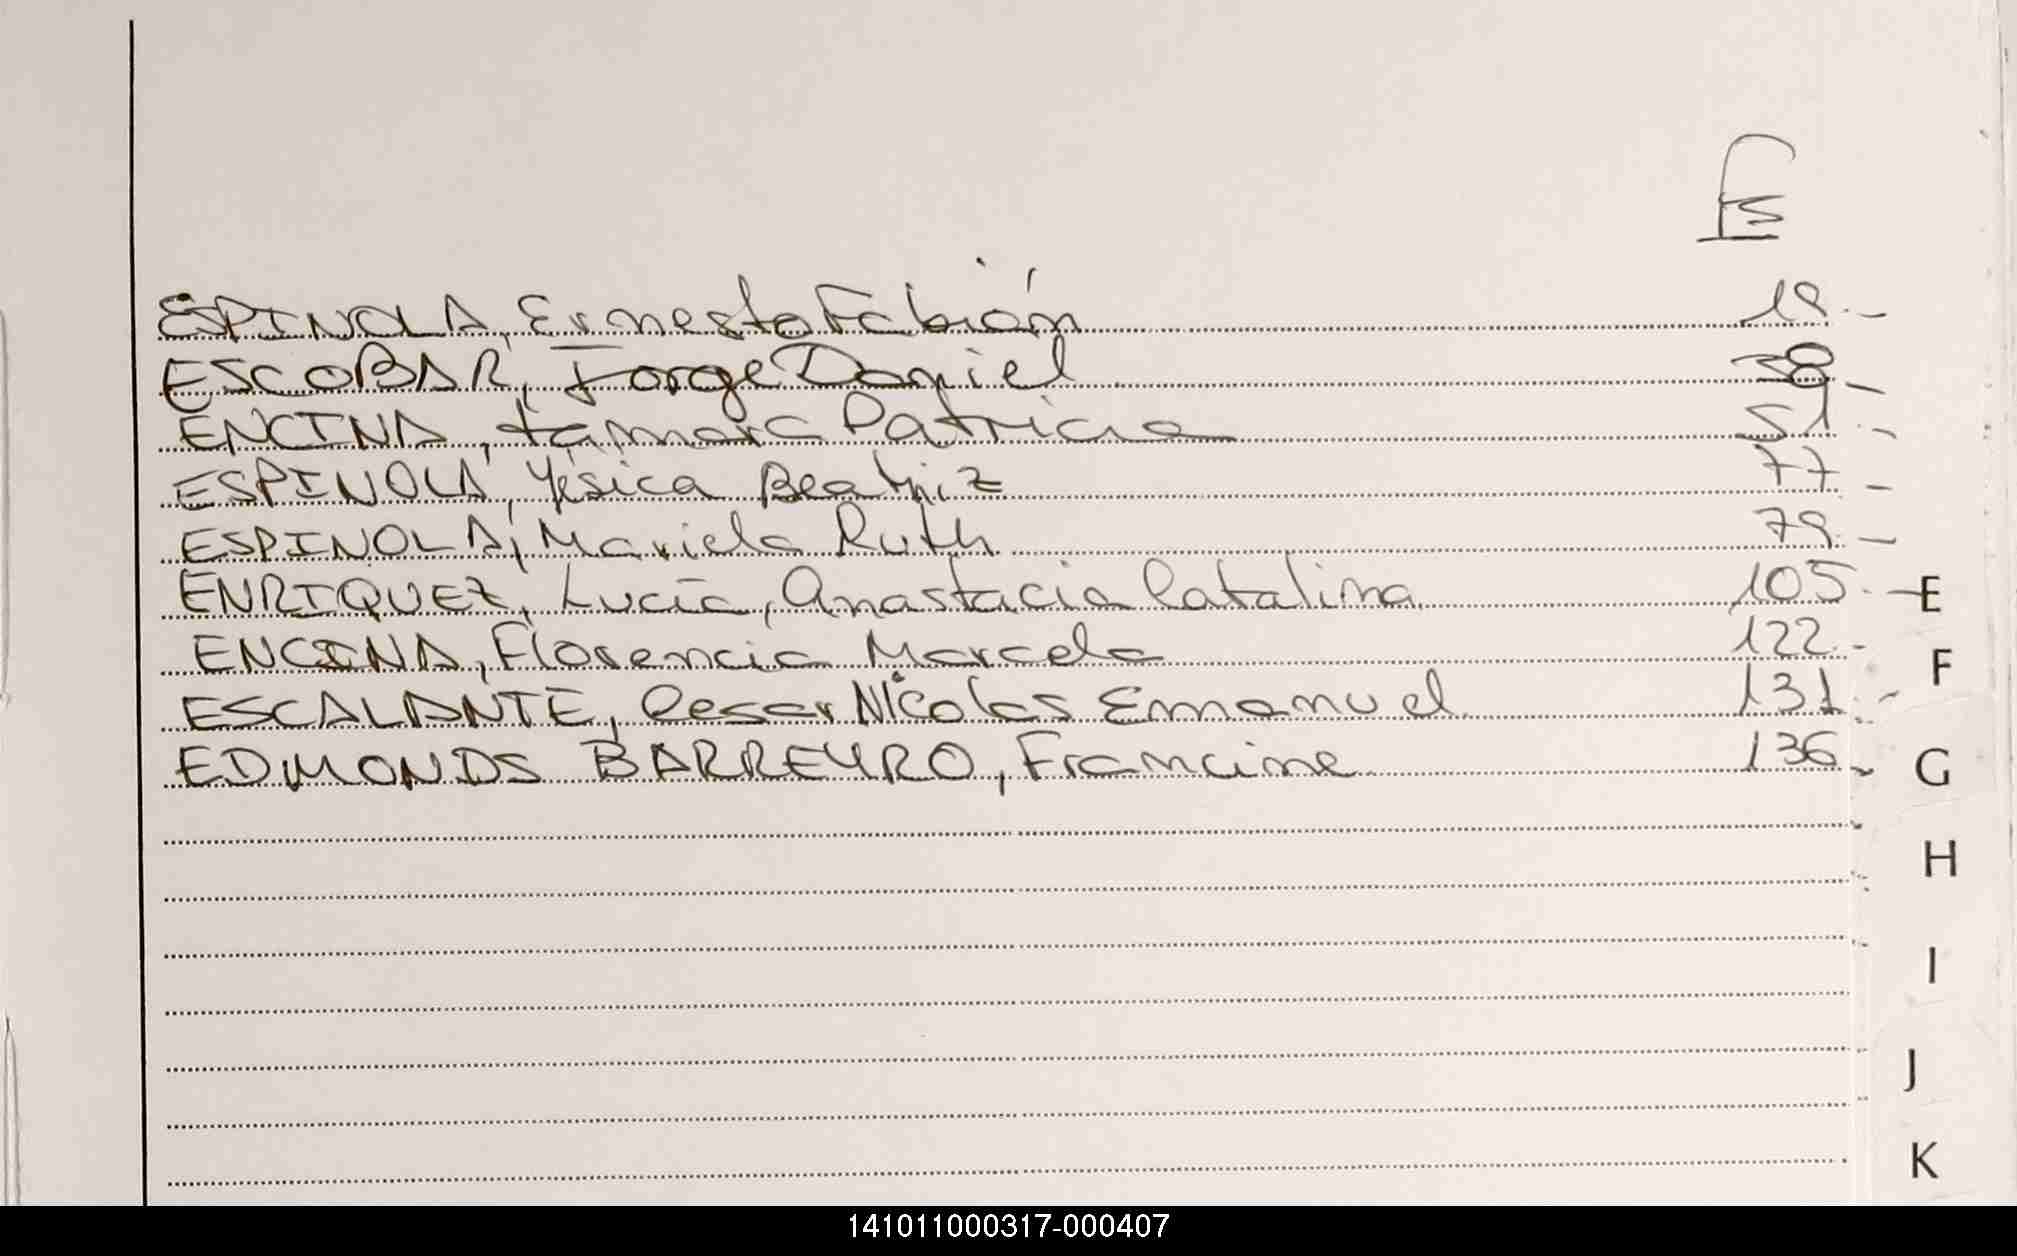 Es
ESPINOLA, Ernesto Fabián 19.-
ESCOBAR, Jorge Daniel 38.-
ENCINA, Támara Patricia 51.-
ESPINOLA, Yésica Beatriz 77.-
ESPINOLA, Mariela Ruth 79.-
ENRIQUEZ, Lucía, Anastacia Catalina 105.-
E
ENCINA, Florencia Marcela 122.-
F
ESCALANTE, Cesar Nicolas Emanuel 131.-
EDMONDS BARREYRO, Francine 136.-
G
H
I
J
K
141011000317-000407